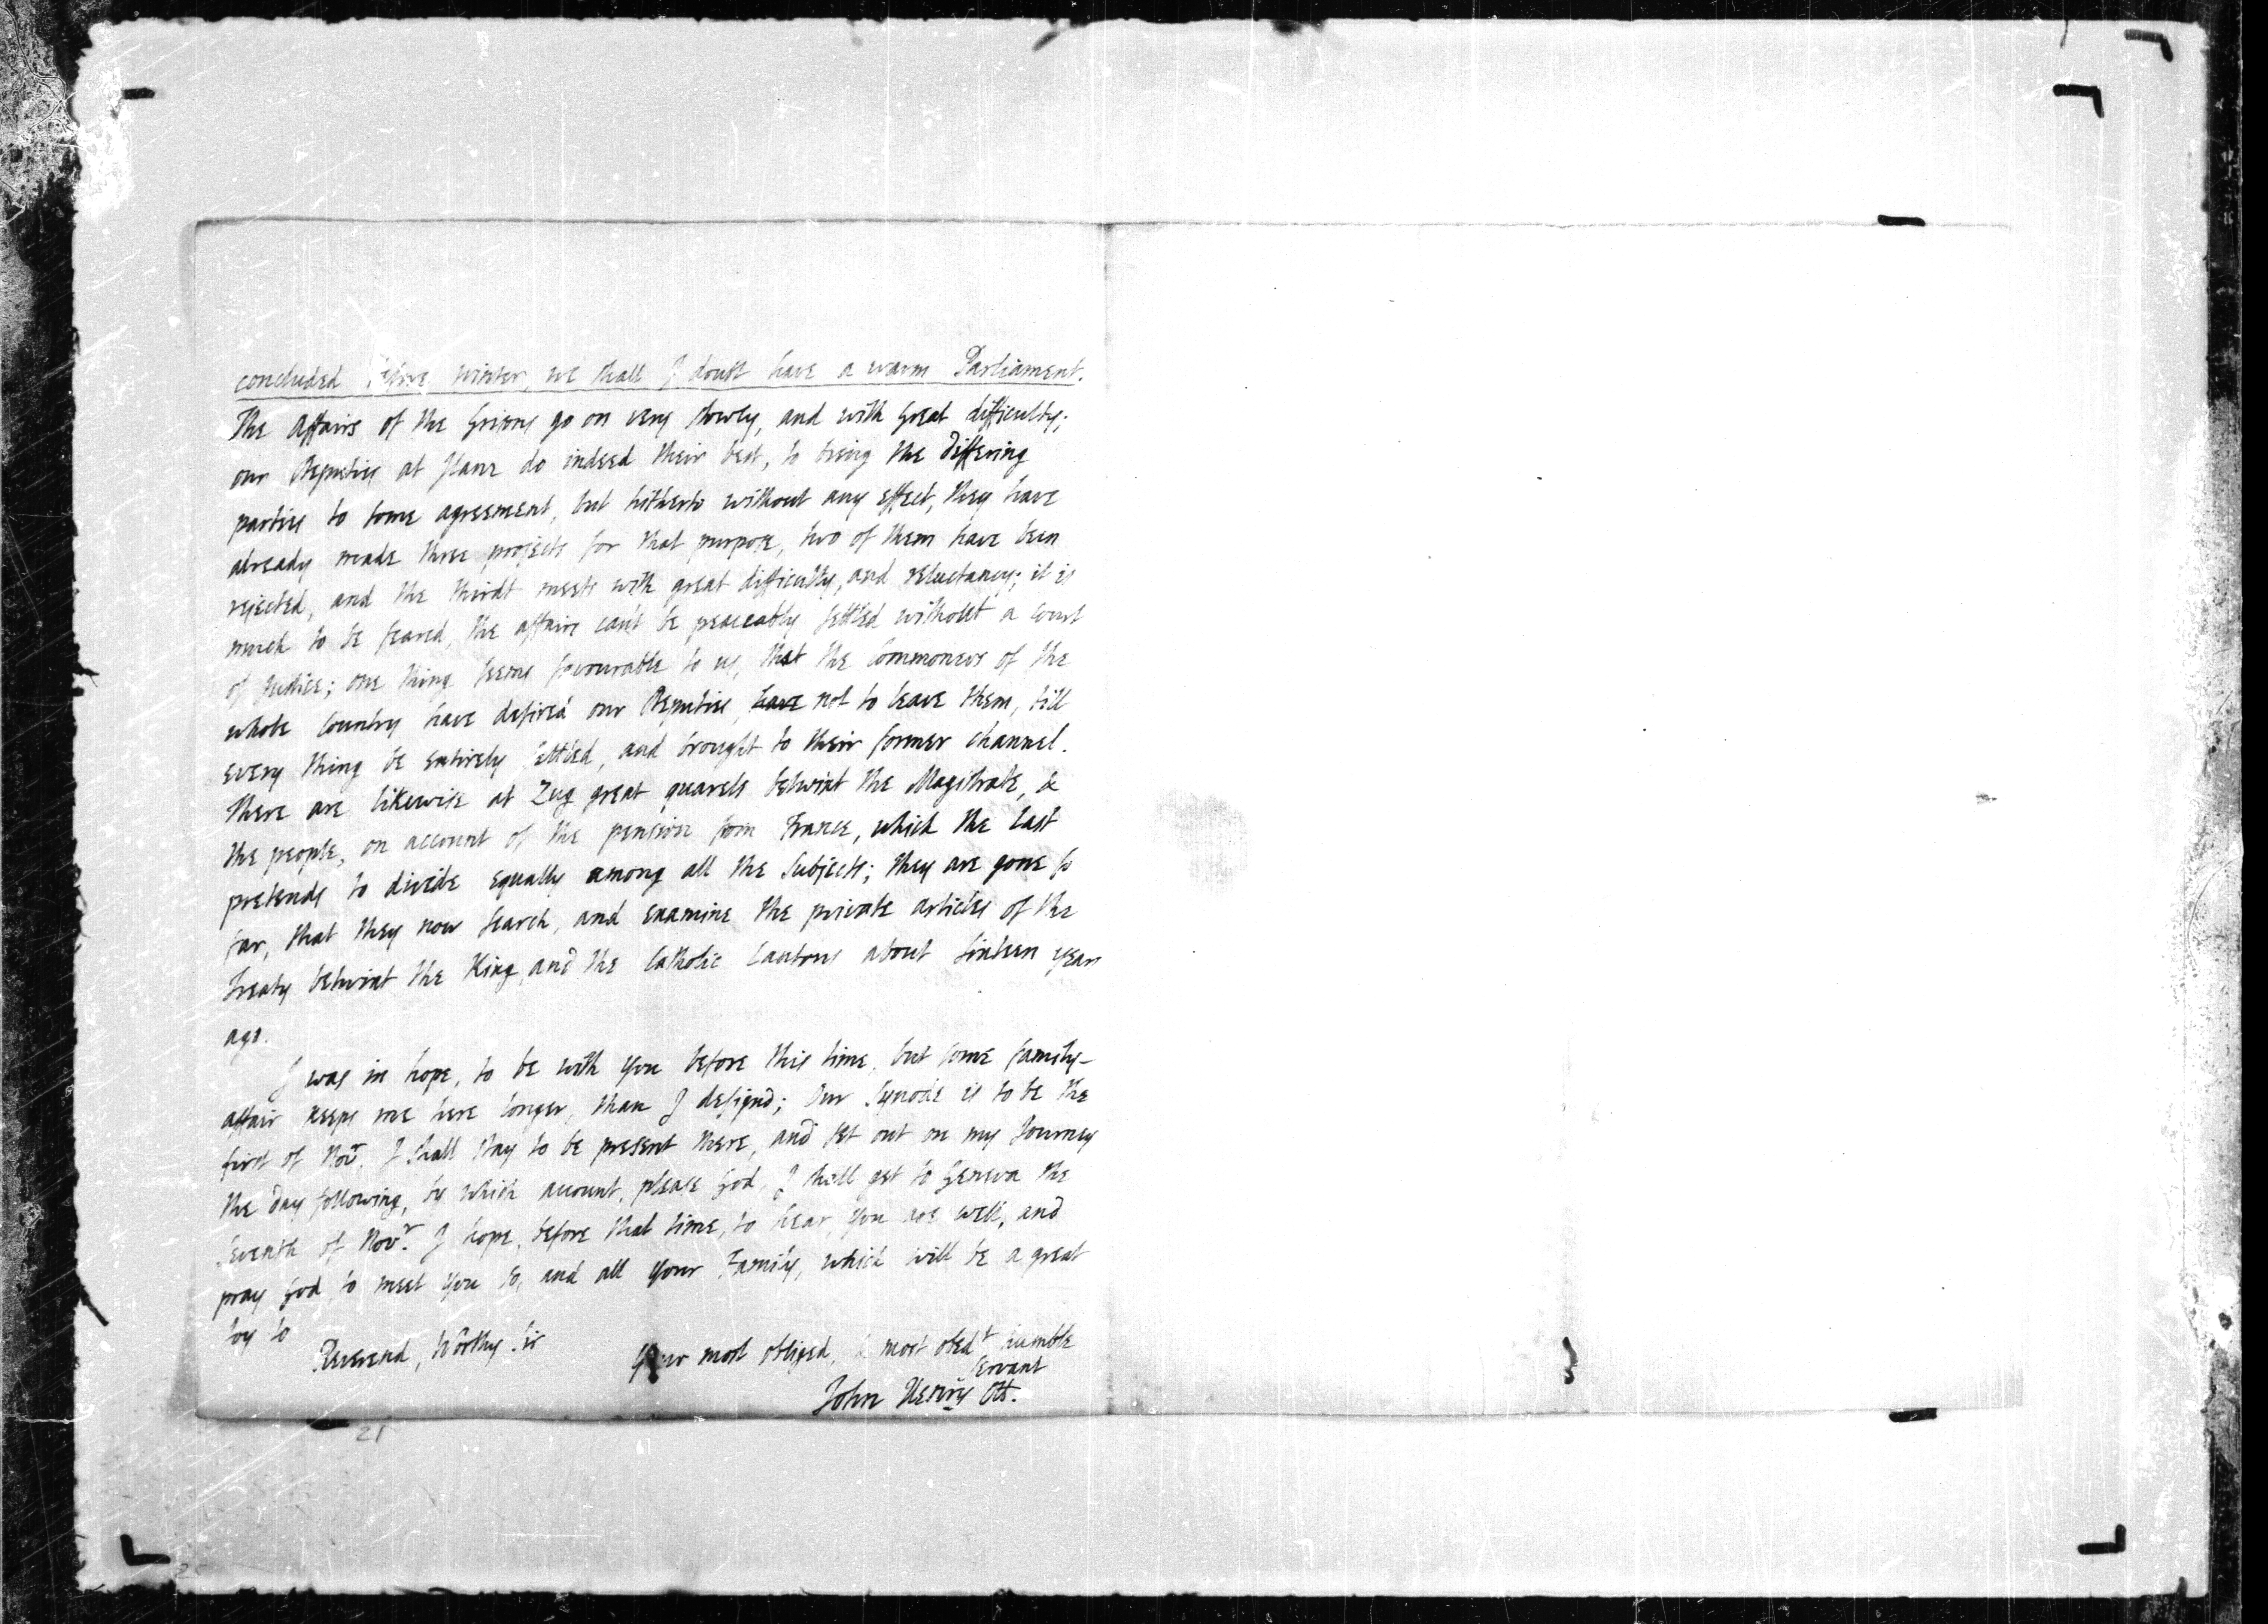 concluded before winter, we shall I doubt have a warm Parliament.
The affairs of the Grisons go on very slowly, and with great difficulty;
our Deputies at Ilanz do indeed their best, to bring the differing
parties to some agreement, but hitherto without any effect, they have
already made three projects for that purpose, two of them have been
rejected, and the thirdt meets with great difficulty, and reluctancy; it is
much to be feared, the affairs can't be peaceably settled without a court
of Justice; one thing seems favourable to us, that the Commoners of the
whole Country have desired our Deputies, have not to leave them, till
every thing be entirely settled, and brought to their former channel.
There are likewise at Zug great quarels betwixt the Magistrate, &
the people, on account of the pension from France, which the last
pretends to divide equally among all the Subjects; they are gone so
far, that they now search, and examine the private articles of the
Treaty betwixt the King, and the Catholic Cantons about sixteen years
ago.
I was in hope, to be with you before this time, but some family-
affair keeps me here longer, than I designd; Our Synode is to be the
first of Novr. I shall stay to be present there, and set out on my Journey
the day following, by which account, please God, I shall get to Geneva the
Seventh of Novr. I hope, before that time, to hear, you are well, and
pray God to meet you so, and all your Family, which will be a great
Joy to
Reverend, Worthy Sir
Your most obliged, & most obedt humble
servant
John Henry Ott.
21